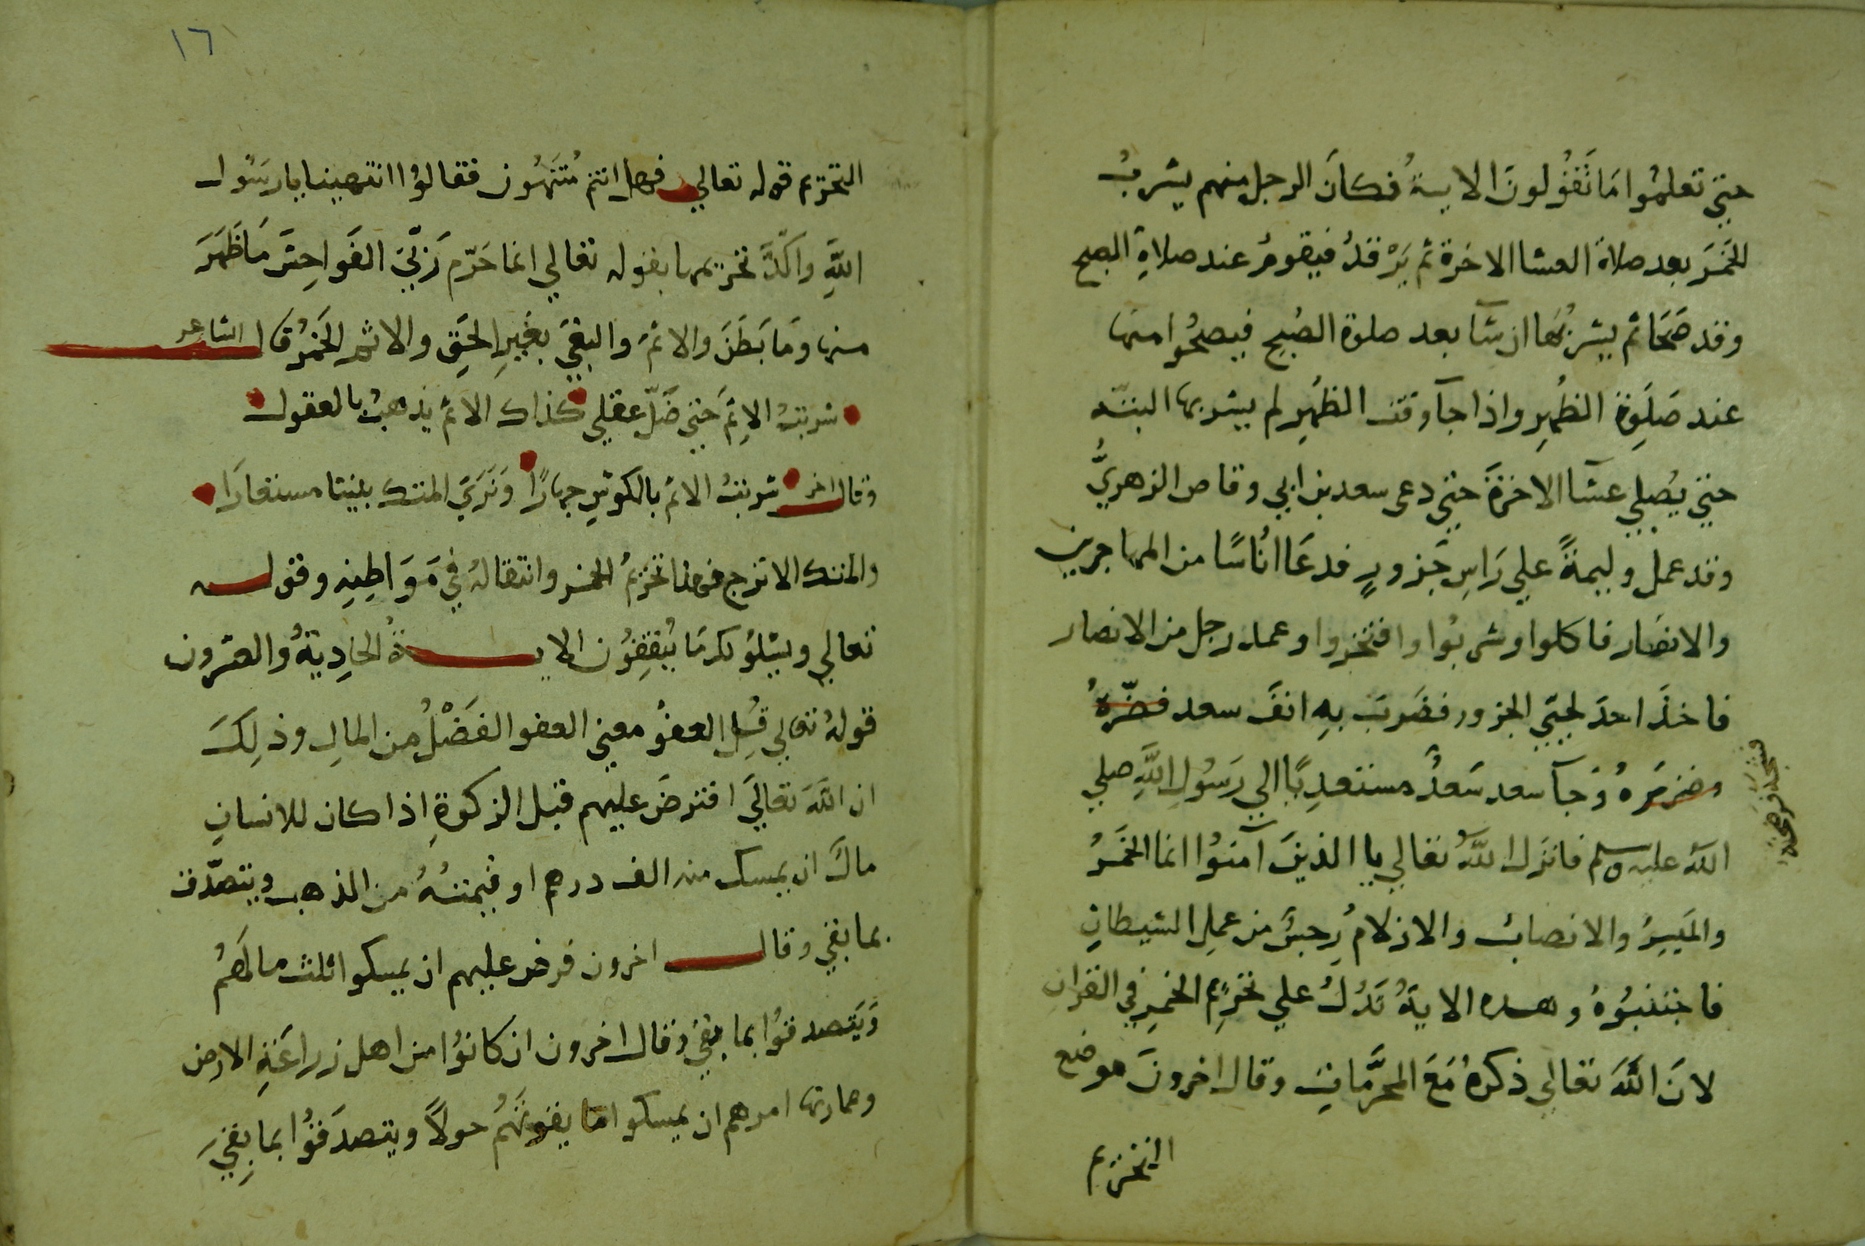 حتى تعلموا مَا تَقُولونَ الاية فكانَ الرجل منهم يشربُ
الخمَرَ بعد صلاة العشا الاخرة ثم يَرْقدُ فيقومُ عند صلاةِ الصبح
وقد صَحَا ثم يشربُهَا ان شآ بعد صلوة الصُبحِ فيصحُوا منها
عند صَلَوة الظُهرِ واذا جآ وقت الظُهرِ لم يشربها البتة
حتي يُصلي عشآ الاخرَةَ حتي دعى سعد بن ابي وقاص الزهريُّ
وقد عمل وليمةً علي رَاسِ جَزورٍ فدعَا انُاسًا من المهاجرين
والانصَار فاكلوا وشربُوا وافتخروا وعمد رجل من الانصار
فاخذَ احدَ لحيَي الجزور فضَربَ بهِ انفَ سعد فضّرهُ
وضزمَره وَجآ سعد سَعدٌ مستعدِيًا الي رَسُولِ اللَّهِ صلي
اللهُ عليه وسلم فانزل اللهُ تعالي يا الذينَ آمنُوا انما الخَمرُ
والمَيسِرُ والانصابُ والازلامُ رِجسٌ من عملِ الشيطانِ
فاجتنبُوهُ وهذه الايةُ تَدُلُ علي تحرَيمِ الخمرِ في القرانِ
لانَ اللَّهَ تعالي ذكرهُ مَعَ المحرَّماتِ وقال اخرونَ موضع
التحريم
١٦
التحريم قوله تعالي فهل انتم مُنتَهُون فقالوُا انتهينا يا رسَوُل
اللَّهِ واكَّدَ تحريمها بقوله تعالي انما حَرّم رَبّيَ الفَواحِشَ مَا ظَهَرَ
منها ومَا بَطَنَ والاثمَ والبغَي بغَيرِ الحَقِ والاثم الخَمرُ قال الشاعر
شربتُ الاِثمَ حَتي ضَلّ عقلي كذاك الاثمُ يذهبُ بالعقول
وقال اخر شربتُ الاثم بالكوسِ جهارًا وَنَرَي المتك بيننا مستعارَا
والمتك الاترج فهذا تحريمُ الخمر وانتقالهُ في مَوَاطِنِهِ وقوله
تعالي ويسَلوُنكَ مَا يُنفِقُون الاية الحَادِيةُ والعشرون
قولهُ تعالي قُل العفوُ معني العفو الفَضْلُ من المالِ وذلِكَ
ان اللهَ تعالَي افترضَ عليهم قبل الزكوةِ اذا كان للانسانِ
مالٌ ان يمسك منه الف درهم او قيمتُهُ من الذهب ويتصدّق
بما بقي وقال اخرون فرض عليهم ان يمسكوا ثلث مالهُمُ
وَيَتَصدقوُا بما بقيَ وقال اخرون ان كانوُا من اهل زراعَةِ الارض
وعمارتها امرهم ان يمسكوا مَا يقوتهُمُ حولاً ويتصدَقوُا بما بِقيَ